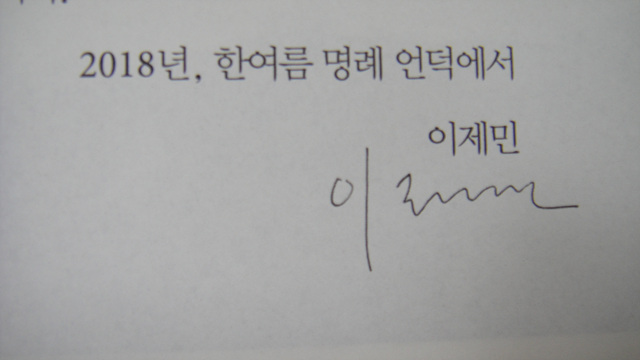 2018년, 한여름 명례 언덕에서
이제민
이